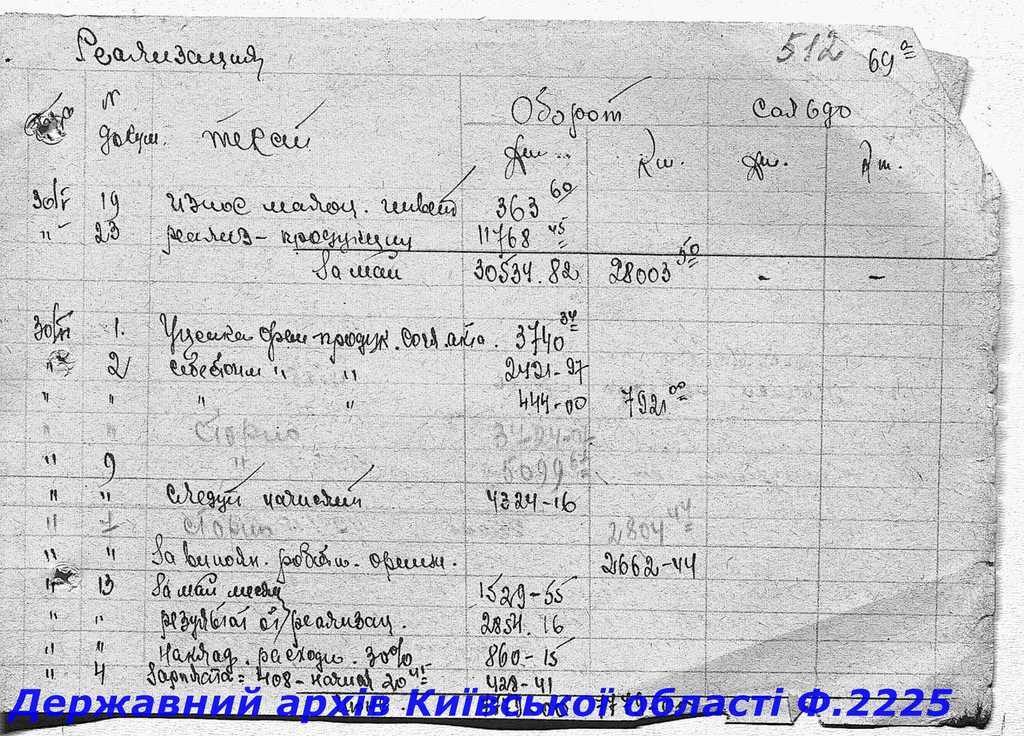 Реализация 512 69а
N докум. текст Оборот Сальдо
Дт. Кт. Дт. Кт.
30/V 19 износ малоц. инвент 363 60
" 23 реализ - продукции 11768 45
За май 30534.82 28003 50 - -
30/VI 1. Уценка продук. согл. акта. 3740 34
" 2 " " 2421-97
" " " " 444-00 7921 00
" " Сторно
" 9 " 5099
" " следует начислить 4324-16
" 1 Сторно 2804 44
" " За выполн. работы. 2662-44
" 13 За май месяц 1529-55
" " результат от реализац. 2854.16
" " Наклад. расходы. 30% 860-15
" 4 Зарплата = 408 - начисл 20 41 428-41
Державний архів Київської області Ф.2225